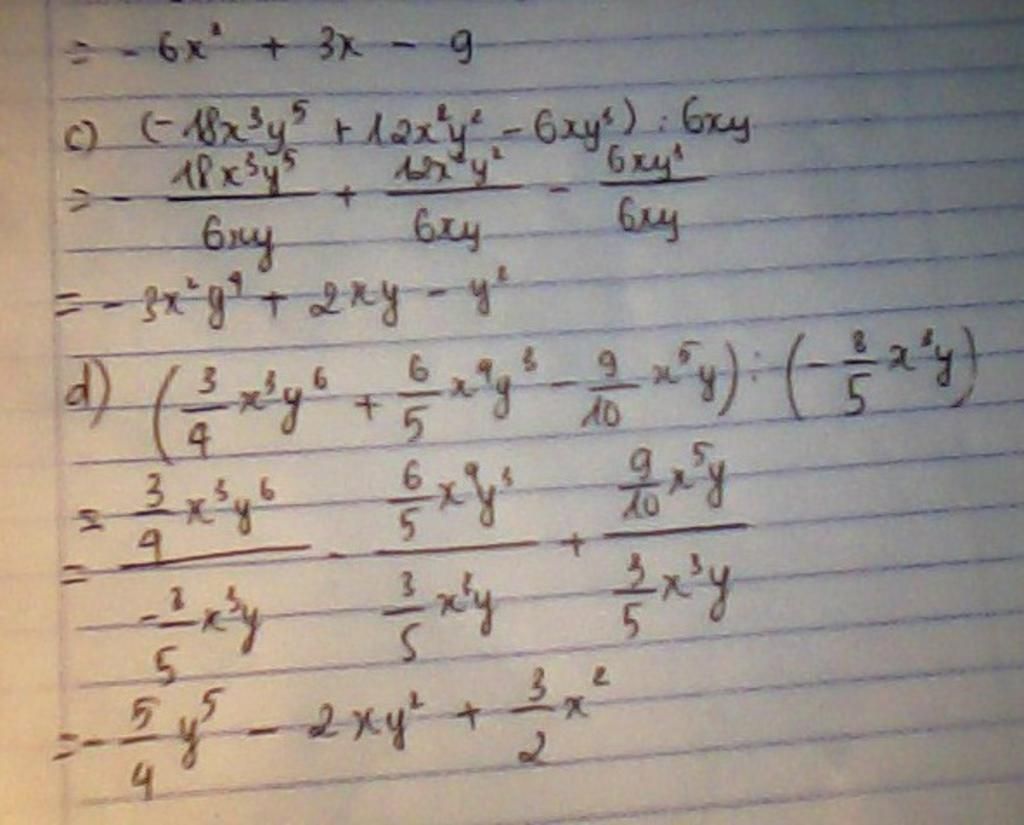 = - 6x² + 3x - 9
c) (-18x³y⁵ + 12x²y² - 6xy³) : 6xy
= - \frac{18x³y⁵}{6xy} + \frac{12x²y²}{6xy} - \frac{6xy³}{6xy}
= - 3x²y⁴ + 2xy - y²
d) (\frac{3}{4}x³y⁶ + \frac{6}{5}x⁴y³ - \frac{9}{10}x⁵y) : (-\frac{3}{5}x³y)
= \frac{\frac{3}{4}x³y⁶}{-\frac{3}{5}x³y} - \frac{\frac{6}{5}x⁴y³}{\frac{3}{5}x³y} + \frac{\frac{9}{10}x⁵y}{\frac{3}{5}x³y}
= -\frac{5}{4}y⁵ - 2xy² + \frac{3}{2}x²